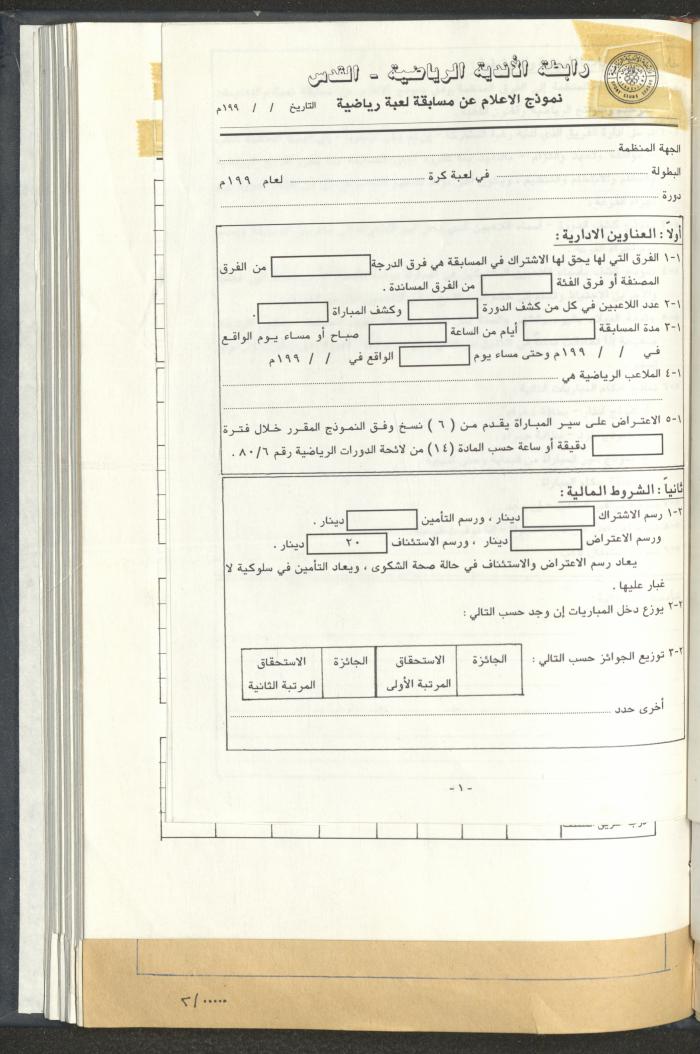 رابطة الأندية الرياضية - القدس
نموذج الاعلام عن مسابقة لعبة رياضية التاريخ / / ١٩٩م
الجهة المنظمة
البطولة في لعبة كرة لعام ١٩٩م
دورة
أولاً : العناوين الادارية :
١-١ الفرق التي لها يحق لها الاشتراك في المسابقة هي فرق الدرجة من الفرق
المصنفة أو فرق الفئة من الفرق المساندة .
٢-١ عدد اللاعبين في كل من كشف الدورة وكشف المباراة .
٣-١ مدة المسابقة أيام من الساعة صباح أو مساء يوم الواقع
في / / ١٩٩م وحتى مساء يوم الواقع في / / ١٩٩م
٤-١ الملاعب الرياضية هي
٥-١ الاعتراض على سير المباراة يقدم من ( ٦ ) نسخ وفق النموذج المقرر خلال فترة
دقيقة أو ساعة حسب المادة (١٤) من لائحة الدورات الرياضية رقم ٨٠/٦ .
ثانياً : الشروط المالية :
١-٢ رسم الاشتراك دينار ، ورسم التأمين دينار .
ورسم الاعتراض دينار ، ورسم الاستئناف ٢٠ دينار .
يعاد رسم الاعتراض والاستئناف في حالة صحة الشكوى ، ويعاد التأمين في سلوكية لا
غبار عليها .
٢-٢ يوزع دخل المباريات إن وجد حسب التالي :
٣-٢ توزيع الجوائز حسب التالي :
الجائزة الاستحقاق الجائزة الاستحقاق
المرتبة الأولى المرتبة الثانية
أخرى حدد
- ١ -
٢/٠٠٠٠٠